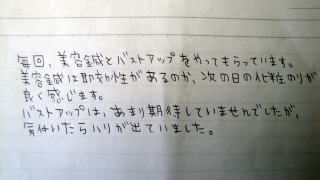 毎回、美容鍼とバストアップをやってもらっています。
美容鍼は即効性があるのか、次の日の化粧のりが
良く感じます。
バストアップは、あまり期待していませんでしたが、
気付いたらハリが出ていました。